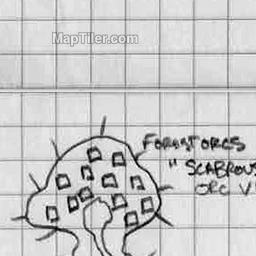 MapTiler.com
FOREST ORCS
" SCABROUS
ORC V